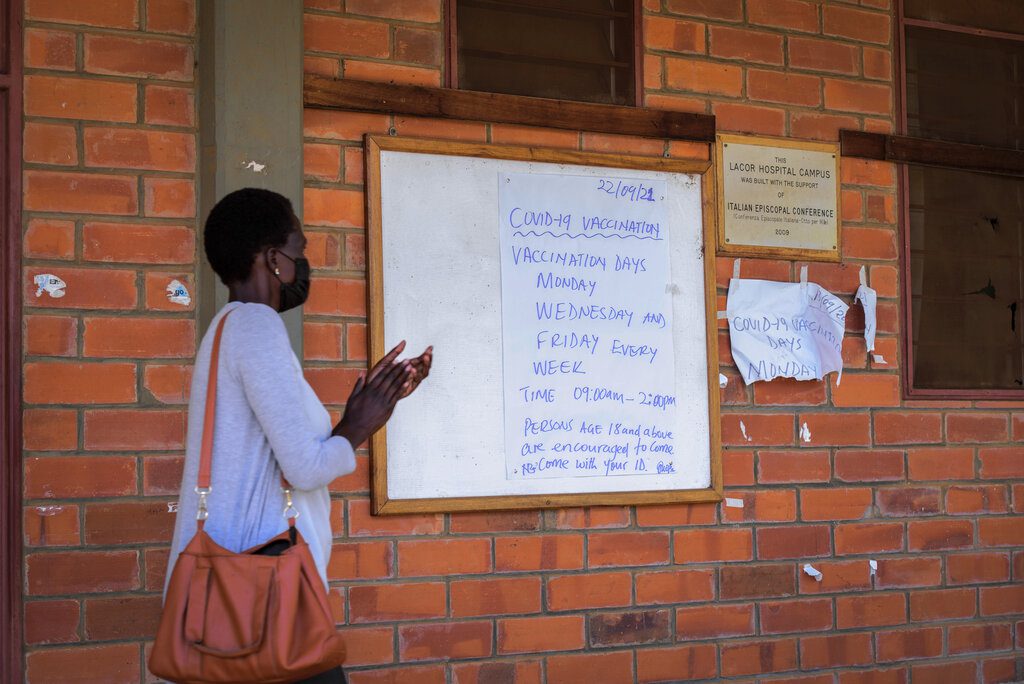 22/09/21
COVID-19 VACCINATION
VACCINATION DAYS
MONDAY
WEDNESDAY AND
FRIDAY EVERY
WEEK
TIME 09:00am - 2:00pm
PERSONS AGE 18 and above
are encouraged to come
Come with your ID.
THIS
LACOR HOSPITAL CAMPUS
WAS BUILT WITH THE SUPPORT
OF
ITALIAN EPISCOPAL CONFERENCE
(Conferenza Episcopale Italiana - Otto per Mille)
2009
COVID-19 VACCINATION
DAYS
MONDAY